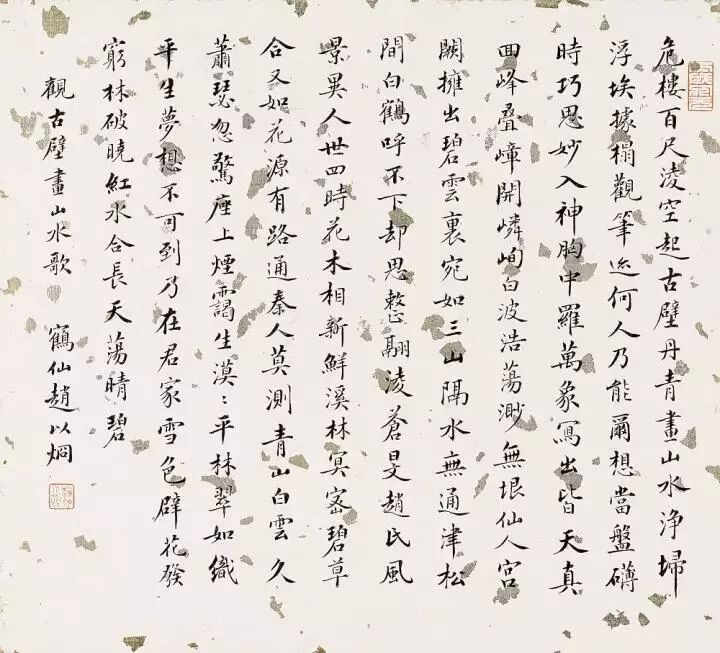 危樓百尺淩空起古壁丹青畫山水浄掃
浮埃據榻觀筆迹何人乃能爾想當盤礴
時巧思妙入神胸中羅萬象寫出皆天真
回峰疊嶂開嶙峋白波浩蕩渺無垠仙人宮
闕擁出碧雲裏宛如三山隔水無通津松
間白鶴呼不下却思整翮淩蒼旻趙氏風
景異人世四時花木相新鮮溪林冥密碧草
合又如花源有路通秦人莫測青山白雲久
蕭瑟忽驚座上煙靄生漠〻平林翠如織
平生夢想不可到乃在君家雪色壁花發
窮林破曉紅水合長天蕩晴碧
觀古壁畫山水歌 鶴仙趙以炯